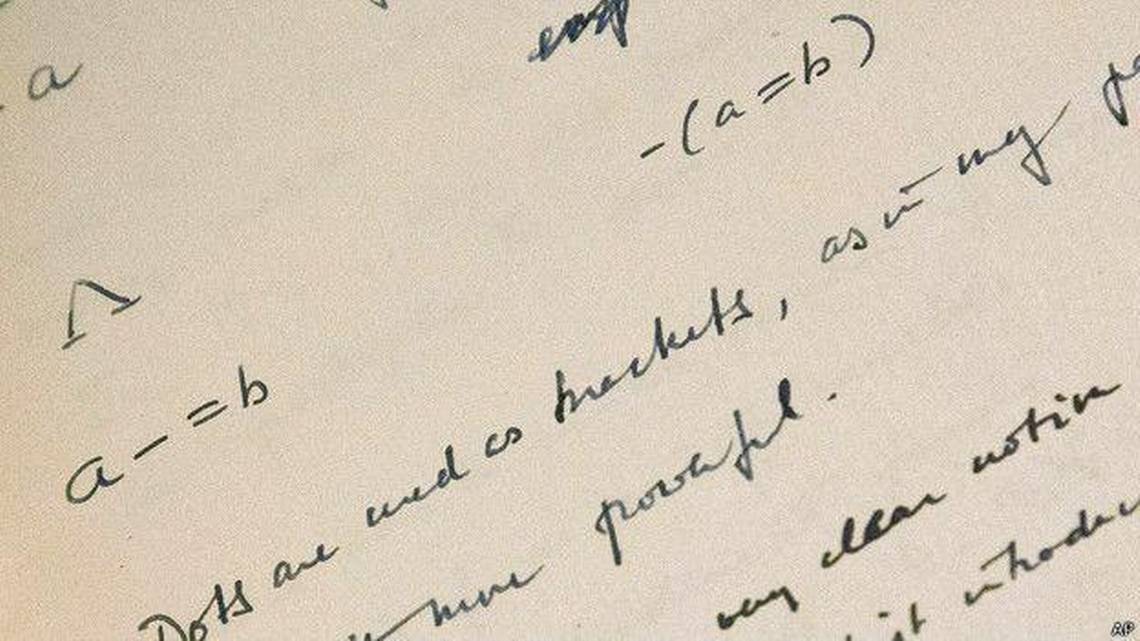 a
-(a=b)
Λ
a-=b
Dots are used as brackets, as in my
more powerful.
very clear notion
it introduc
AP